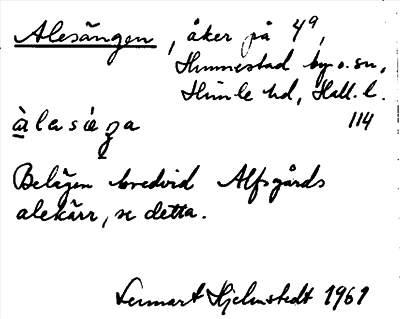 Alesängen, åker på 4⁹,
Hunnestad by o. sn,
Himle hd, Hall. l.
àlasæŋa 114
Belägen bredvid Alfsgårds
alekärr, se detta.
Lennart Hjelmstedt 1961